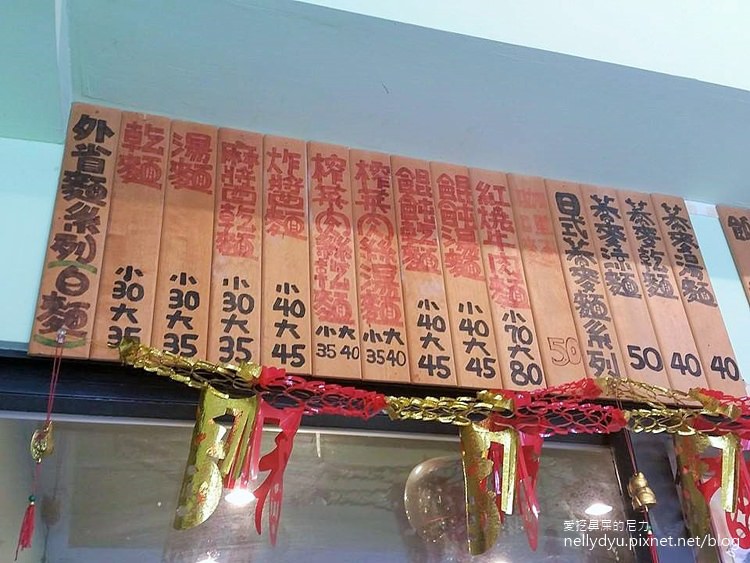 外省麵系列(白麵)
乾麵 小30大35
湯麵 小30大35
麻醬乾麵 小30大35
炸醬麵 小40大45
榨菜肉絲乾麵 小大 35 40
榨菜肉絲湯麵 小大 35 40
餛飩乾麵 小40大45
餛飩湯麵 小40大45
紅燒牛肉麵 小70大80
50
日式蕎麥麵系列
蕎麥涼麵 50
蕎麥乾麵 40
蕎麥湯麵 40
愛挖鼻屎的尼力
nellydyu.pixnet.net/blog